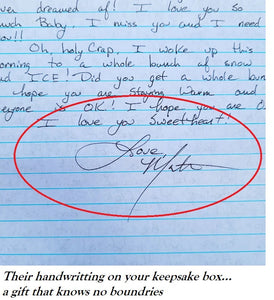 ver dreamed of! I love you so
uch Baby. I miss you and I need
ou!!
Oh, holy Crap, I woke up this
orning to a whole bunch of snow
nd ICE! Did you get a whole bun
hope you are staying Warm and
eryone is OK! I hope you are O
I love you Sweetheart!
Love,
Their handwritting on your keepsake box...
a gift that knows no boundries